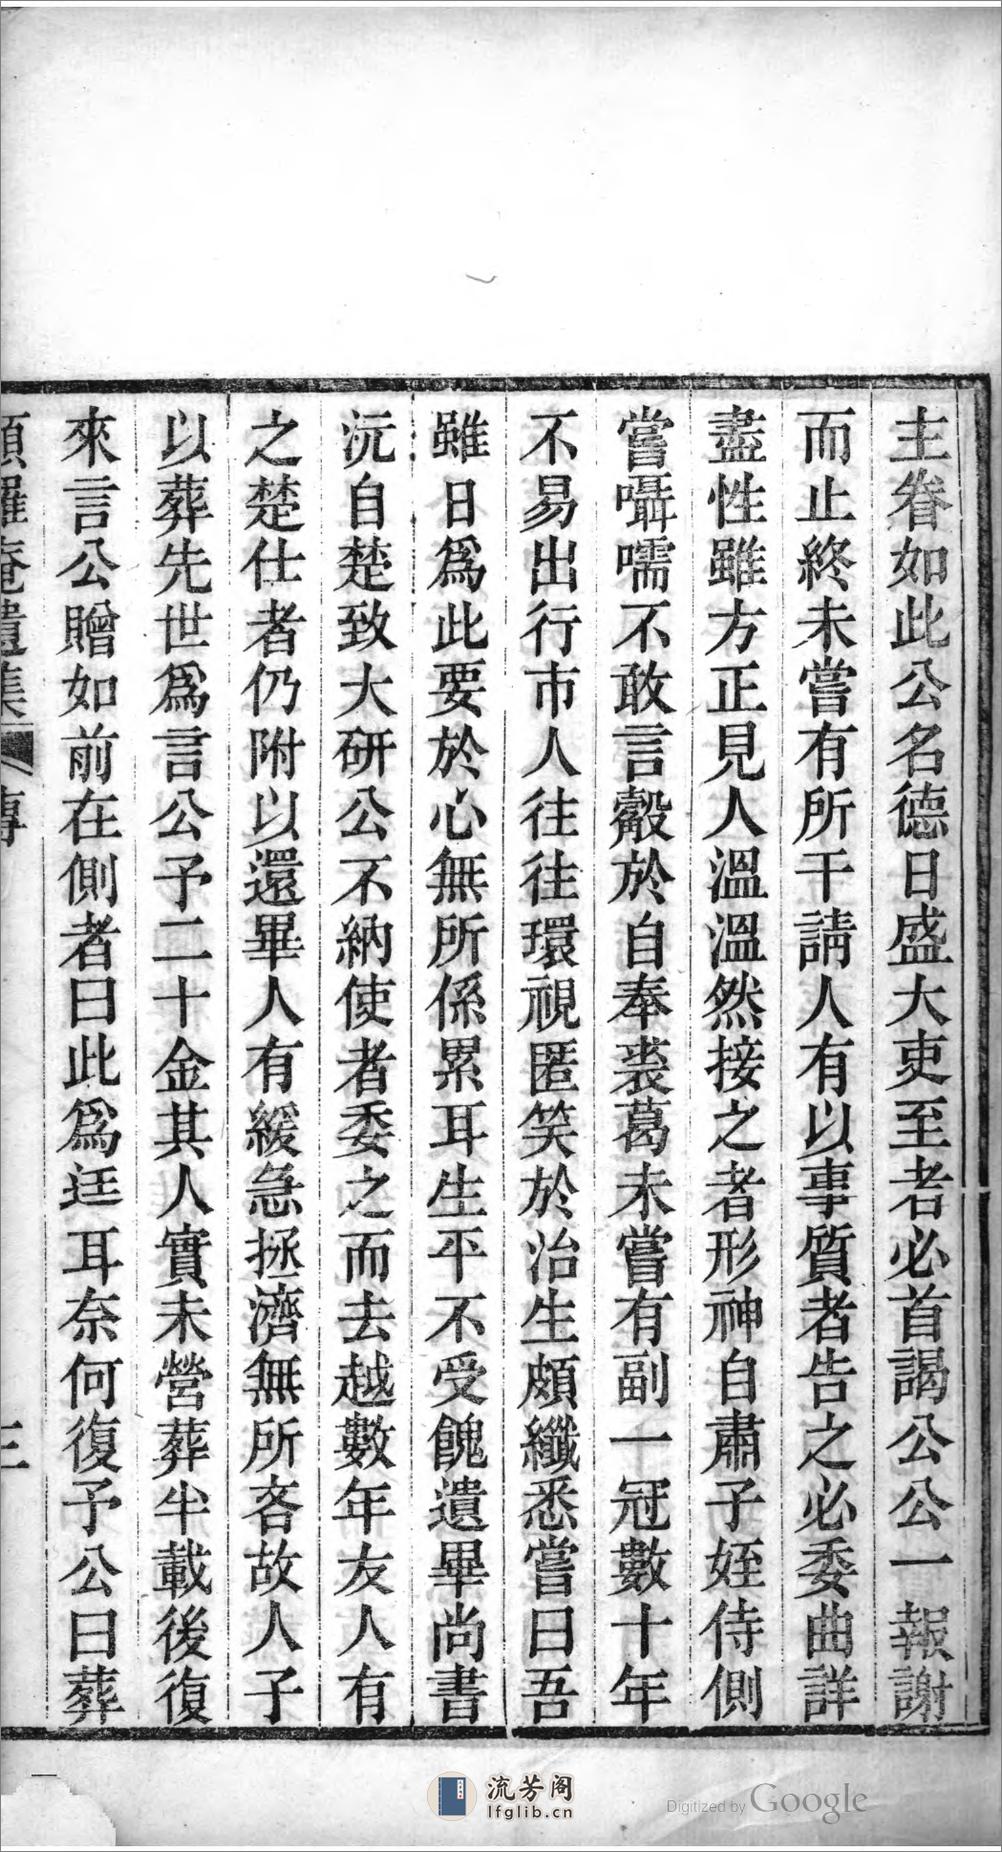 主眷如此公名德日盛大吏至者必首謁公公一報謝
而止終未嘗有所干請人有以事質者告之必委曲詳
盡性雖方正見人溫溫然接之者形神自肅子姪侍側
嘗囁嚅不敢言觳於自奉裘葛未嘗有副一冠數十年
不易出行市人往往環視匿笑於治生頗纖悉嘗曰吾
雖日爲此要於心無所係累耳生平不受餽遺畢尚書
沅自楚致大研公不納使者委之而去越數年友人有
之楚仕者仍附以還畢人有緩急拯濟無所吝故人子
以葬先世爲言公予二十金其人實未營葬半載後復
來言公贈如前在側者曰此爲迋耳奈何復予公曰葬
頤羅庵遺集
傳
三
流芳阁
lfglib.cn
Digitized by Google